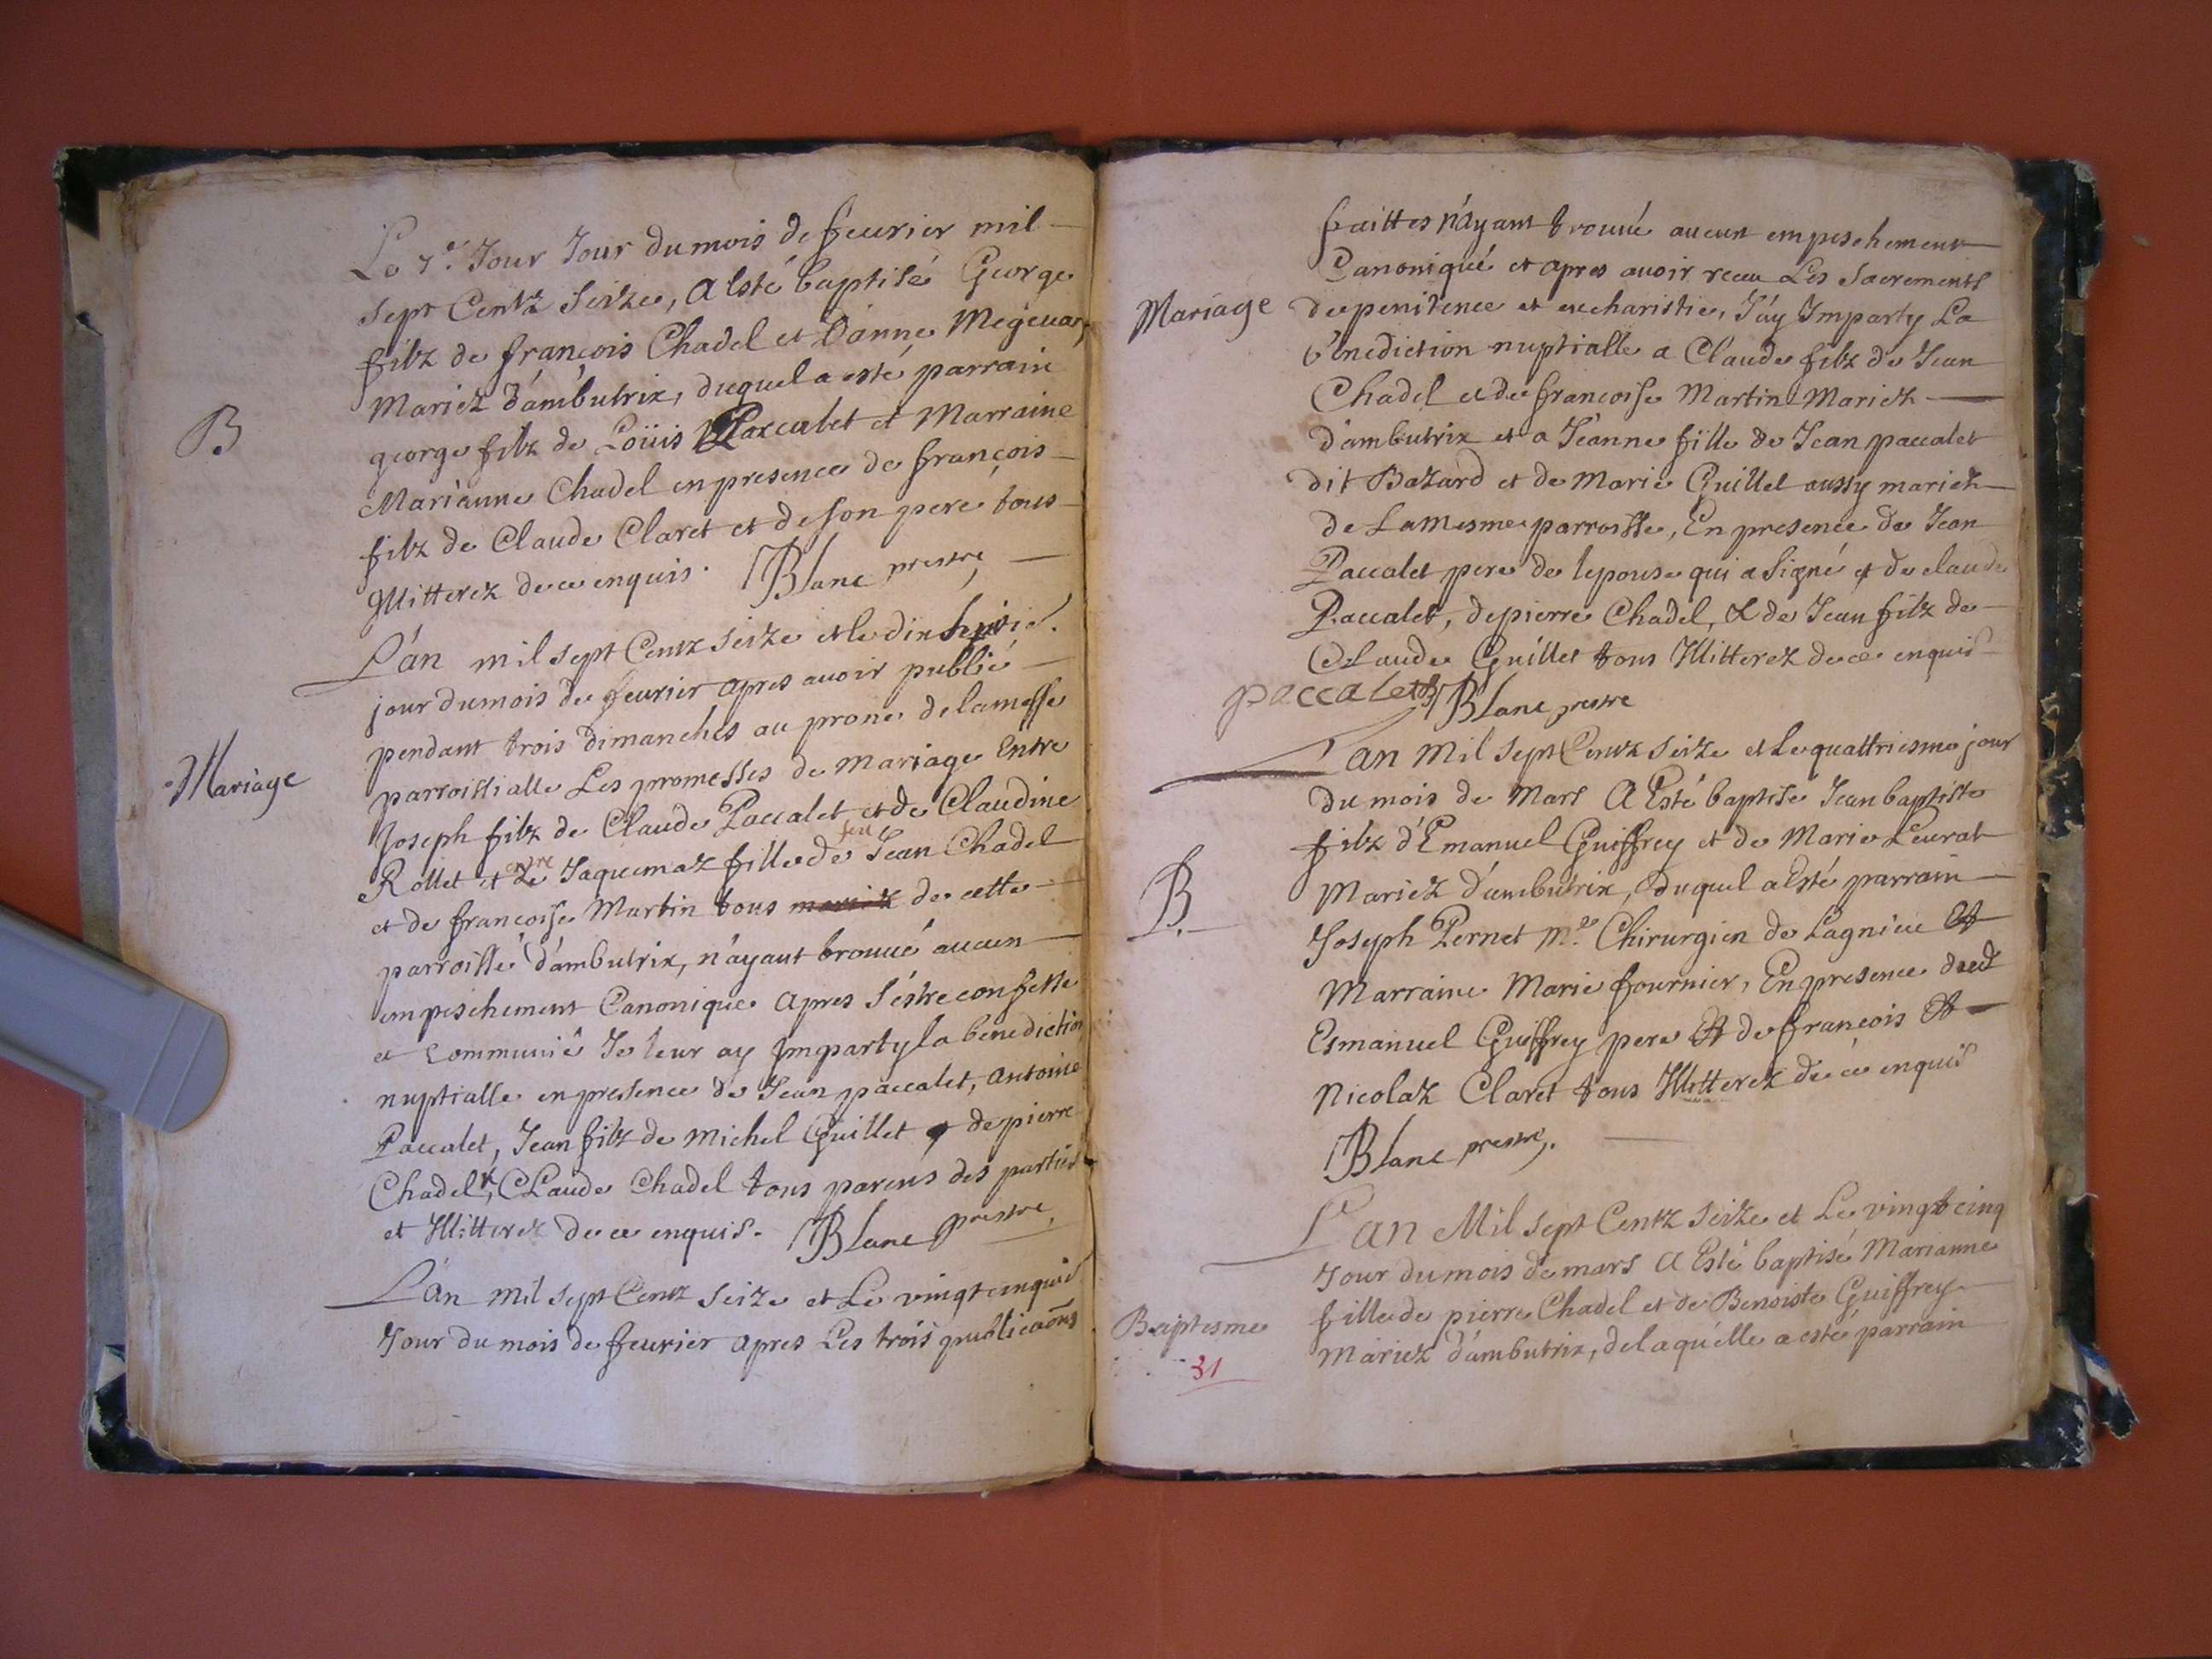 Le 7.e Jour Jour du mois de feurier mil
sept Centz Seize, a Esté baptisé George
filz de françois Chadel et Danne
Mariez d'ambutrix, duquel a esté parrain
B
george filz de Loüis Paccalet et Marraine
Marianne Chadel en presence de françois
filz de Claude Claret et de son pere tous
Illitterez de ce enquis. Blanc prestre
L'an mil sept Centz seize et le dix huit
jour du mois de feurier apres auoir publié
pendant trois dimanches au prone de la messe
Mariage
parroissialle Les promesses de mariage Entre
Joseph filz de Claude Paccalet et de Claudine
Rollet et entre Jaquemaz fille de feu Jean Chadel
et de francoise Martin tous mariez de cette
parroisse d'ambutrix, n'ayant trouué aucun
empeschement Canonique apres s'estre confesse
et communié Je leur ay Imparty la benediction
nuptialle en presence de Jean paccalet, antoine
Paccalet, Jean filz de michel Guillet & de pierre
Chadel, & CLaude Chadel tous parens des parties
et Illitterez de ce enquis. Blanc prestre,
L'an mil sept Centz seize et Le vingt cinquie
Jour du mois de feurier apres Les trois publicaons
faittes n'ayant trouué aucun empeschement
Canonique et apres auoir receu Les Sacrements
Mariage
de penitence et eucharistie, J'ay Imparty La
benediction nuptialle a Claude filz de Jean
Chadel et de francoise Martin Mariez
d'ambutrix et a Jeanne fille de Jean paccalet
dit Bazard et de Marie Guillet aussy mariez
de La Mesme parroisse, En presence de Jean
Paccalet pere de lepouse qui a signé & de claude
Paccalet, de pierre Chadel, & de Jean filz de
CLaude Guillet tous Illitterez de ce enquis
paccalet Blanc prestre
Lan mil sept Centz seize et Le quattriesme jour
du mois de Mars a Esté baptisé Jean baptiste
filz d'Emanuel Guiffrey et de Marie Leurat
B.
Mariez d'ambutrix, duquel a Esté parrain
Joseph Pernet m.e Chirurgien de Lagnieu Et
Marraine Marie fournier, En presence dud
Esmanuel Guiffrey pere Et de francois Et
Nicolaz Claret tous Illitterez de ce enquis
Blanc prestre.
Lan Mil sept Centz seize et Le vingt cinq
Jour du mois de mars a Esté baptisé Marianne
Baptesme
fille de pierre Chadel et de Benoiste Guiffrey
mariez d'ambutrix, de laquelle a esté parrain
31